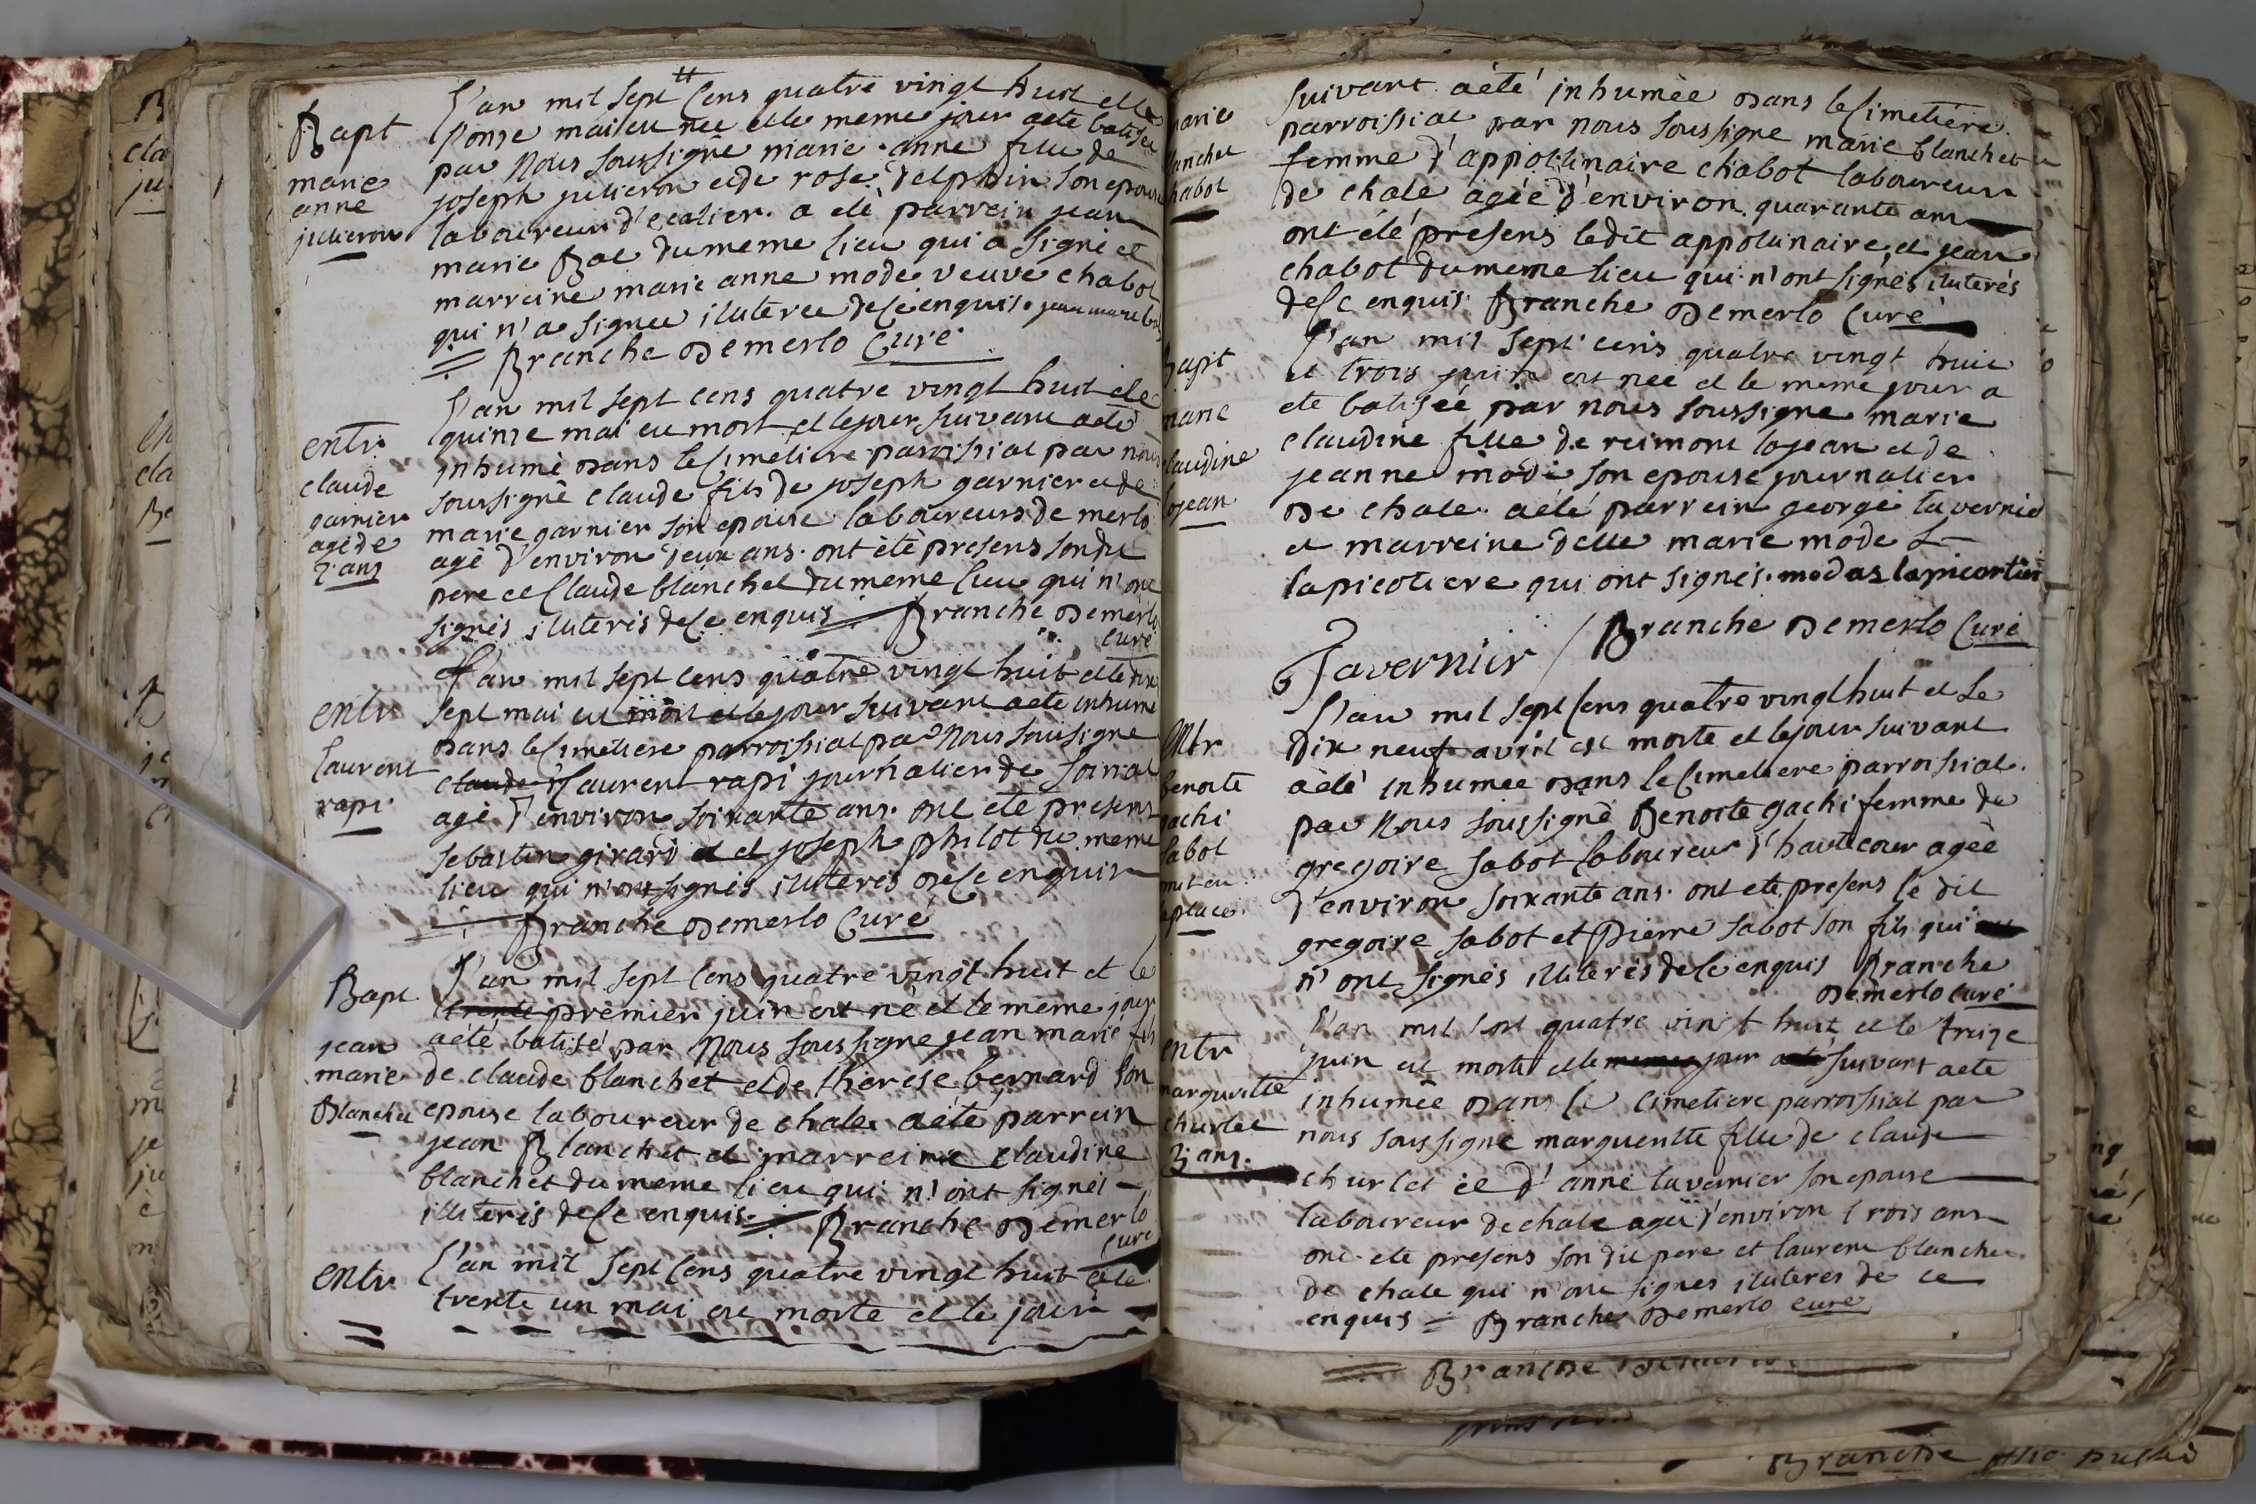 Bapt
marie
anne
julieron
L'an mil sept cens quatre vingt huit et le
onze mai eu née et le meme jour aeté batisée
par Nous soussigne marie anne fille de
joseph julieron et de rose delphin son epouse
laboureur d'ecalier. a eté parrein jean
marie Bal du meme lieu qui a signé et
marreine marie anne mode veuve chabot
qui n'a signee illuteree de ce enquis.
Branche Demerlo Curé
entr.
claude
garnier
agé de
2 ans
L'an mil sept cens quatre vingt huit et le
quinze mai eu mort et le jour suivant aeté
inhumé dans le Cimetiere paroissial par nous
soussigné claude fils de joseph garnier et de
marie garnier son epouse laboureurs de merlo
agé d'environ deux ans. ont été presens son du
pere et Claude blanchet du meme lieu qui n'ont
signés illuterés de ce enquis Branche Demerlo
Curé
entr
laurent
rapi
L'an mil sept cens quatre vingt huit et le dix
sept mai eu mort et le jour suivant aeté inhumé
dans le Cimetiere parroissial par Nous soussigne
claude Laurent rapi journalier de
agé d'environ soixante ans. ont eté presens
sebastien girard et et joseph philot du meme
lieu qui n'ont signés illuterés de ce enquis
Branche Demerlo Curé
Bapt
jean
marie
Blanchet
L'an mil sept cens quatre vingt huit et le
trente premier juin est né et le meme jour
aété batisé par Nous soussigne jean marie fils
de claude blanchet et de therese bernard son
epouse laboureur de chale aété parrein
jean Blanchet et marreine claudine
blanchet du meme lieu qui n'ont signés
illuterés de ce enquis. Branche Demerlo
Curé
entr
L'an mil sept cens quatre vingt huit et le
trente un mai est morte et le jour
marie
blanchet
chabot
suivant aété inhumée dans le Cimetiére
parroissial par nous soussigne marie blanchet
femme d'appollinaire chabot laboureur
de chale agée d'environ quarante ans
ont été presens ledit appolinaire et jean
chabot du meme lieu qui n'ont signés illuterés
de ce enquis Branche Demerlo Curé
Bapt
marie
claudine
lojean
L'an mil sept cens quatre vingt huit
et trois juin est née et le meme jour a
eté batisée par nous soussigne marie
claudine fille de reimont lojean et de
jeanne mode son epouse journalier
de chale. aété parrein george tavernier
et marreine delle marie mode
lapicotiere qui ont signés. modas lapicortier
Tavernier Branche Demerlo Curé
Mtr
benoite
gachi
sabot
mit en
place
L'an mil sept cens quatre vingt huit et le
dix neuf avril est morte et le jour suivant
aété inhumée dans le Cimetiere parroissial
par Nous soussigné Benoite gachi femme de
gregoire sabot laboureur d'hautecour agée
d'environ soixante ans. ont eté presens le dit
gregoire sabot et Pierre sabot son fils qui
n'ont signés illuterés de ce enquis Branche
Demerlo Curé
entr
marguerite
churlet
3 ans.
L'an mil sept quatre vingt huit et le treize
juin est morte et le meme jour aeté suivant aeté
inhumée dans le cimetiere parroissial par
nous soussigne marguerite fille de claude
churlet et d'anne tavernier son epouse
laboureur de chale ageé d'environ trois ans
ont eté presens son dit pere et laurent blanchet
de chale qui n'ont signés illuterés de ce
enquis = Branche Demerlo curé
Branche
Branche